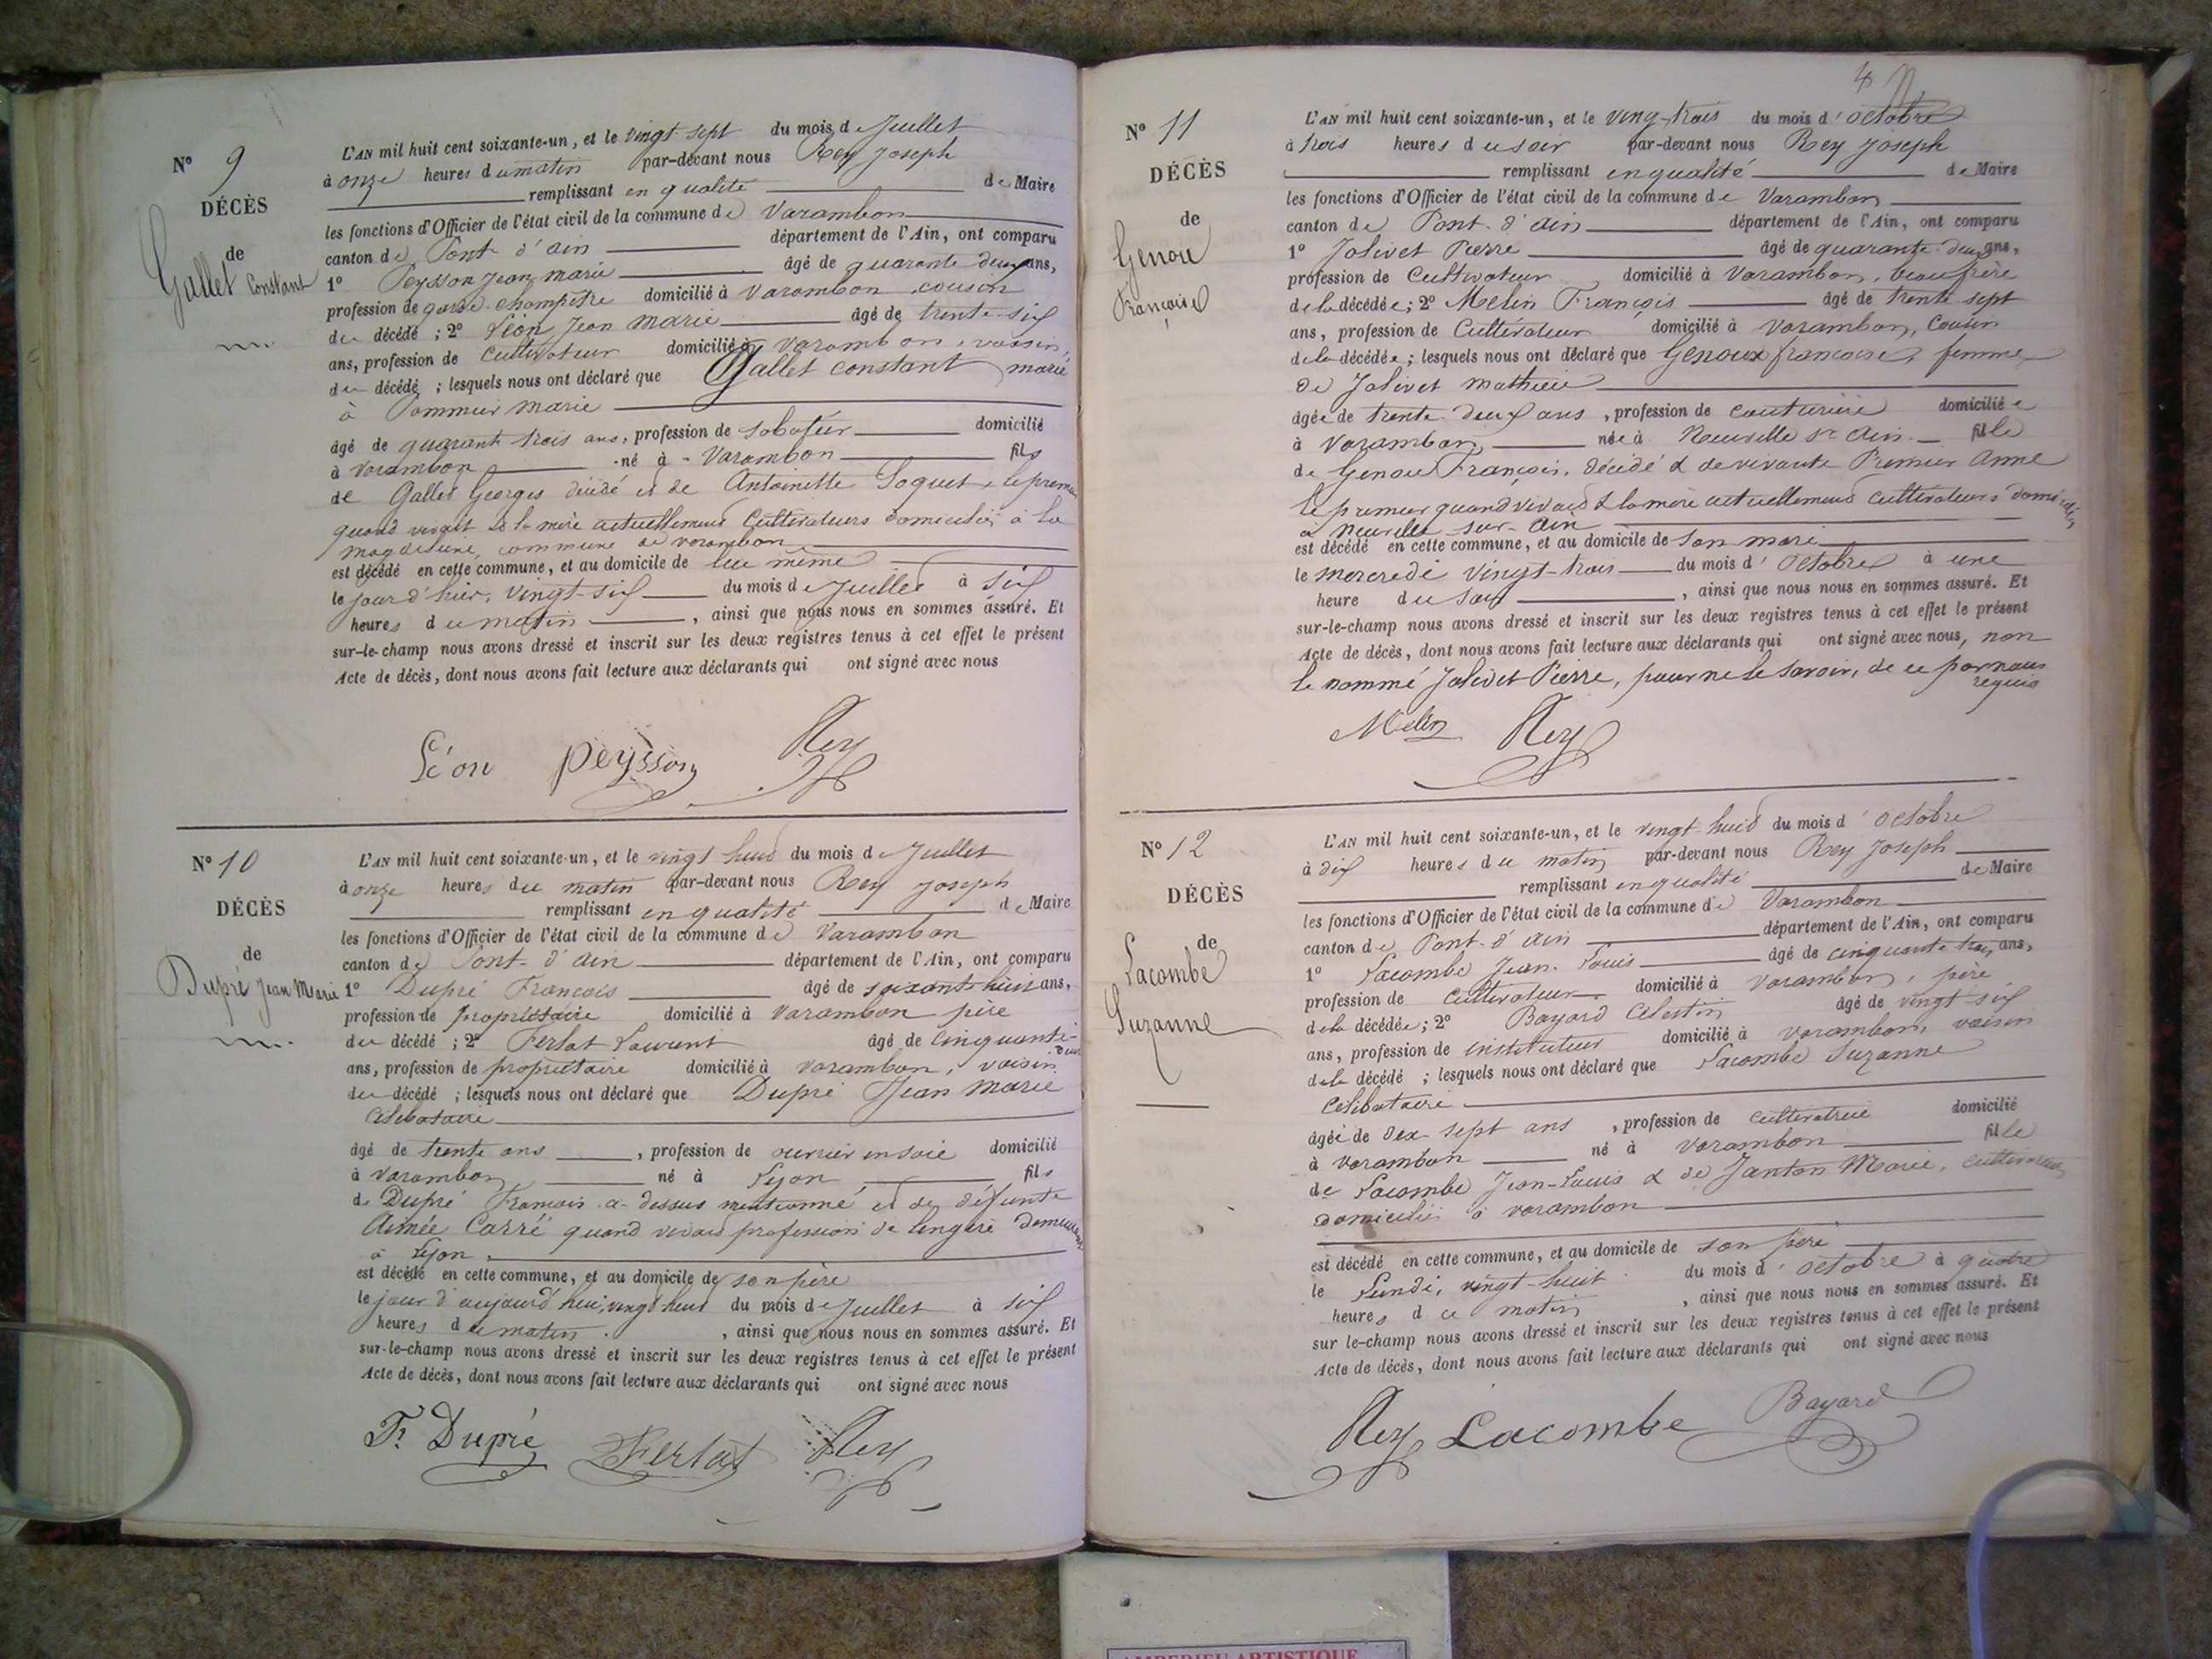 N° 9
DÉCÈS
de
Gallet Constant
L'AN mil huit cent soixante-un, et le vingt sept du mois de Juillet
à onze heures du matin par-devant nous Rey Joseph
remplissant en qualité de Maire
les fonctions d'Officier de l'état civil de la commune de Varambon
canton de Pont d'ain département de l'Ain, ont comparu
1° Peysson Jean marie âgé de quarante deux ans,
profession de garde-champêtre domicilié à Varambon, cousin
du décédé ; 2° Léon Jean marie âgé de trente-six
ans, profession de cultivateur domicilié à varambon, voisin,
du décédé ; lesquels nous ont déclaré que Gallet constant marié
à Pommier marie
âgé de quarante trois ans, profession de sabotier domicilié
à varambon né à Varambon fils
de Gallet Georges décédé et de Antoinette Goguet, le premier
quand vivait & la mère actuellement Cultivateurs domiciliés à la
magdeleine, commune de varambon
est décédé en cette commune, et au domicile de lui même
le jour d'hier, vingt-six du mois de Juillet à six
heures du matin, ainsi que nous nous en sommes assuré. Et
sur-le-champ nous avons dressé et inscrit sur les deux registres tenus à cet effet le présent
Acte de décès, dont nous avons fait lecture aux déclarants qui ont signé avec nous
Léon peysson Rey
N° 10
DÉCÈS
de
Dupré Jean Marie
L'AN mil huit cent soixante-un, et le vingt huit du mois de Juillet
à onze heures du matin par-devant nous Rey Joseph
remplissant en qualité de Maire
les fonctions d'Officier de l'état civil de la commune de Varambon
canton de Pont-d'ain département de l'Ain, ont comparu
1° Dupré Francois âgé de soixante huit ans,
profession de propriétaire domicilié à varambon père
du décédé ; 2° Ferlat Laurent âgé de cinquante-deux
ans, profession de propriétaire domicilié à varambon, voisin
du décédé ; lesquels nous ont déclaré que Dupré Jean Marie
Célibataire
âgé de trente ans, profession de ouvrier en soie domicilié
à varambon né à Lyon fils
de Dupré Francois ci-dessus mentionné et de défunte
Aimée Carré quand vivait profession de lingère
à Lyon
est décédé en cette commune, et au domicile de son père
le jour d'aujourd'hui, vingt huit du mois de Juillet à six
heures du matin, ainsi que nous nous en sommes assuré. Et
sur-le-champ nous avons dressé et inscrit sur les deux registres tenus à cet effet le présent
Acte de décès, dont nous avons fait lecture aux déclarants qui ont signé avec nous
F. Dupré Ferlat Rey
4
N° 11
DÉCÈS
de
Genou
Françoise
L'AN mil huit cent soixante-un, et le ving-trois du mois d'octobre
à trois heures du soir par-devant nous Rey Joseph
remplissant en qualité de Maire
les fonctions d'Officier de l'état civil de la commune de Varambon
canton de Pont-d'ain département de l'Ain, ont comparu
1° Jolivet Pierre âgé de quarante-deux ans,
profession de Cultivateur domicilié à Varambon, beau frère
de la décédée ; 2° Melin François âgé de trente-sept
ans, profession de Cultivateur domicilié à varambon, Cousin
de la décédée ; lesquels nous ont déclaré que Genoux francoise, femme
de Jolivet mathieu
âgée de trente-deux ans, profession de couturière domiciliée
à varambon née à Neuville sr Ain fille
de Genou François, décédé & de vivante Premier Anne
le premier quand vivait & la mère actuellement cultivateurs domiciliés
à Neuville-sur-Ain
est décédé en cette commune, et au domicile de son mari
le mercredi vingt-trois du mois d'octobre à une
heure du soir, ainsi que nous nous en sommes assuré. Et
sur-le-champ nous avons dressé et inscrit sur les deux registres tenus à cet effet le présent
Acte de décès, dont nous avons fait lecture aux déclarants qui ont signé avec nous, non
le nommé Jolivet Pierre, pour ne le savoir, de ce par nous
requis
Melin Rey
N° 12
DÉCÈS
de
Lacombe
Suzanne
L'AN mil huit cent soixante-un, et le vingt-huit du mois d'octobre
à dix heures du matin par-devant nous Rey Joseph
remplissant en qualité de Maire
les fonctions d'Officier de l'état civil de la commune de Varambon
canton de Pont-d'ain département de l'Ain, ont comparu
1° Lacombe Jean-Louis âgé de cinquante trois ans,
profession de cultivateur domicilié à varambon, père
de la décédée ; 2° Bayard Celestin âgé de vingt-six
ans, profession de instituteur domicilié à varambon, voisin
de la décédé ; lesquels nous ont déclaré que Lacombe Suzanne
Célibataire
âgée de dix-sept ans, profession de cultivatrice domicilié
à varambon né à varambon fille
de Lacombe Jean-Louis & de Janton Marie, cultivateurs
domiciliés à varambon
est décédé en cette commune, et au domicile de son père
le Lundi, vingt-huit du mois d'octobre à quatre
heures du matin, ainsi que nous nous en sommes assuré. Et
sur le-champ nous avons dressé et inscrit sur les deux registres tenus à cet effet le présent
Acte de décès, dont nous avons fait lecture aux déclarants qui ont signé avec nous
Rey Lacombe Bayard
AMBERIEU ARTISTIQUE